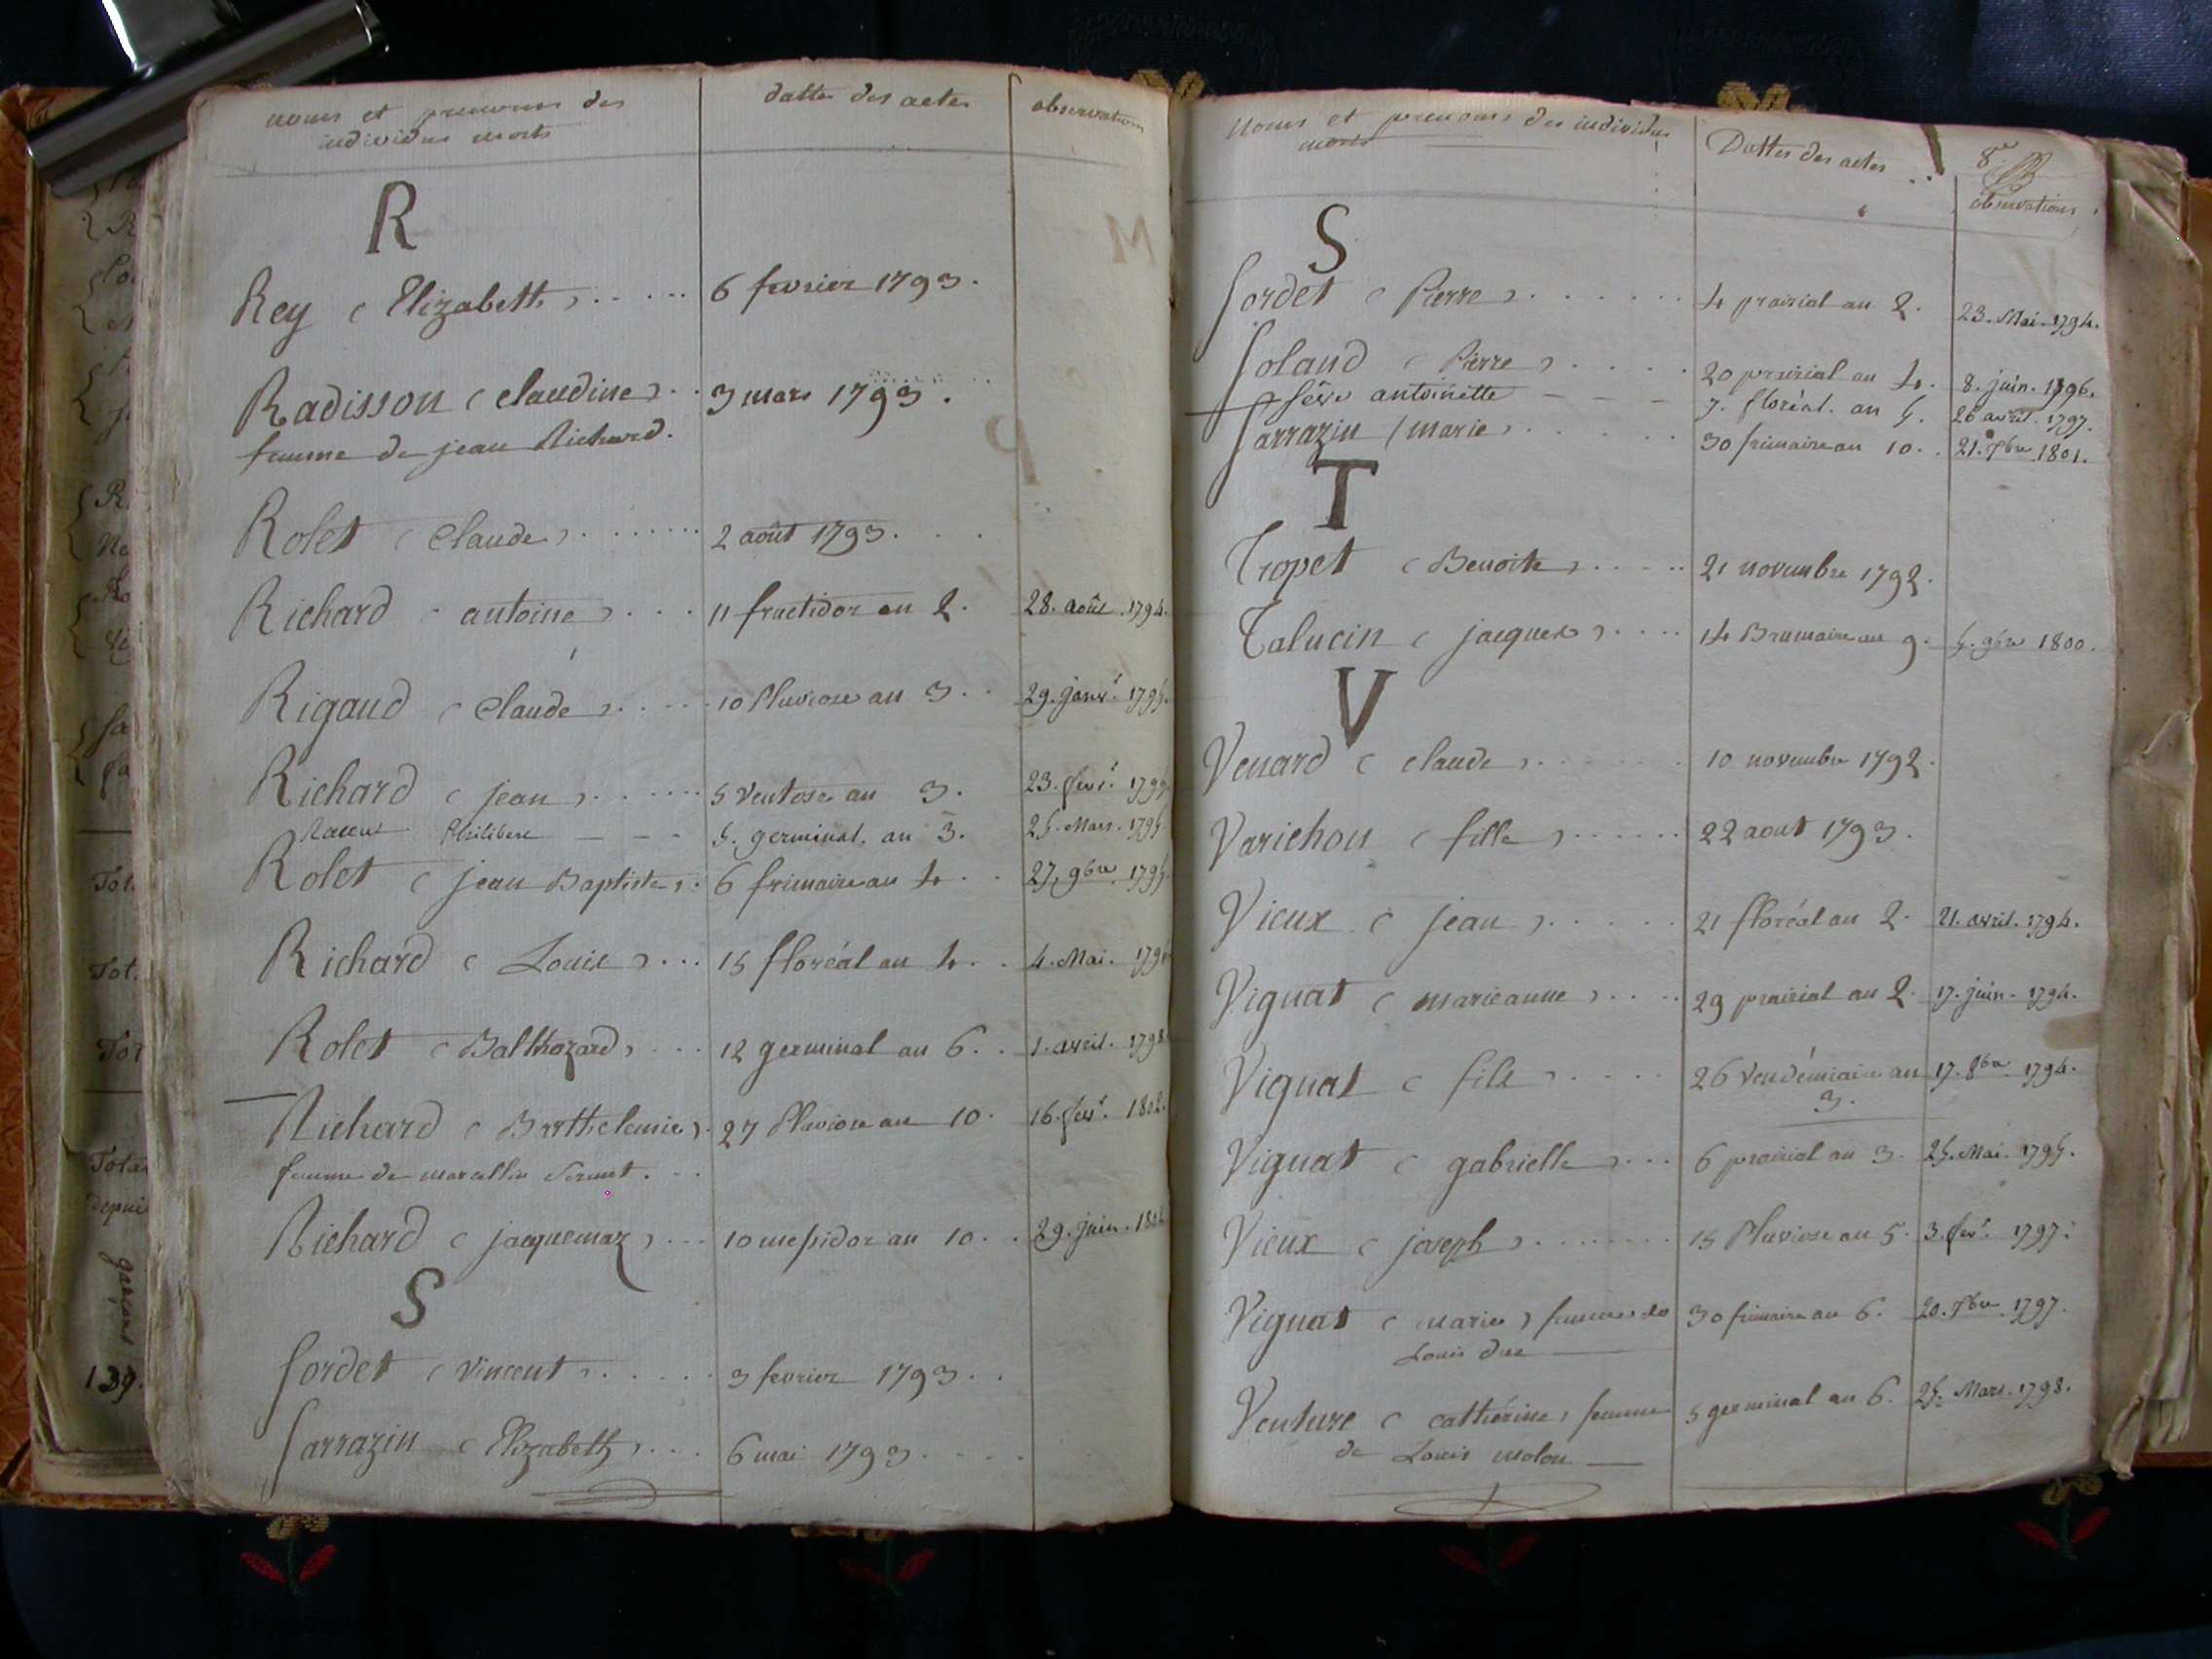 noms et prenoms des
individus morts
dattes des actes
observations
R
Rey (Elizabeth) ..... 6 fevrier 1793.
Radisson (claudine) .. 3 mars 1793.
femme de jean Richard.
Rolet (Claude) ....... 2 août 1793. . .
Richard (antoine) .... 11 fructidor an 2. 28. août. 1794.
Rigaud (Claude) ..... 10 Pluviose an 3. . 29. janvr. 1795.
Richard (jean) ...... 5 Ventose an 3. 23. fevr. 1795.
Philibert - - - 5. germinal. an 3. 25. Mars. 1795.
Rolet (jean Baptiste) . 6 frimaire an 4. . 27. 9bre 1795.
Richard (Louis) ... 15 floréal an 4. . 4. Mai. 1796
Rolet (Balthozard) .... 12 germinal an 6. . 1. avril. 1798
Richard (Barthelemie) . 27 Pluviose an 10. 16. fevr. 1802.
femme de marcellin . . .
Richard (jacquemaz) ... 10 messidor an 10. . 29. juin. 1802
S
Sordet (vincent) ..... 3 fevrier 1793. .
Sarrazin (Elizabeth) ... 6 mai 1793. . . .
noms et prenoms des individus
morts
Dattes des actes . .
8e
observations.
S
Sordet (Pierre) ...... 4 prairial an 2. 23. Mai. 1794.
Soland (Pierre) ..... 20 prairial an 4. 8. juin. 1796.
Sève antoinette - - - 7. floréal. an 5. 26 avril. 1797.
Sarrazin (marie) ...... 30 frimaire an 10. . 21. Xbre 1801.
T
Tropet (Benoite) ..... 21 novembre 1792.
Talucin (jacques) .... 14 Brumaire an 9. 5. 9bre 1800.
V
Venard (claude) ...... 10 novembre 1792.
Varichon (fille) ...... 22 aout 1793.
Vieux (jean) ..... 21 floréal an 2. 21. avril. 1794.
Vignat (marieanne) .... 29 prairial an 2. 17. juin - 1794.
Vignat (fils) ..... 26 Vendémiaire an 17. 8bre 1794.
3.
Vignat (gabrielle) ... 6 prairial an 3. 25. Mai. 1795.
Vieux (joseph) ....... 15 Pluviose an 5. 3. fevr. 1797.
Vignat (marie) femme de 30 frimaire an 6. 20. Xbre 1797.
Louis Duc
Venture (cathérine) femme 5 germinal an 6. 25. Mars. 1798.
de Louis molon